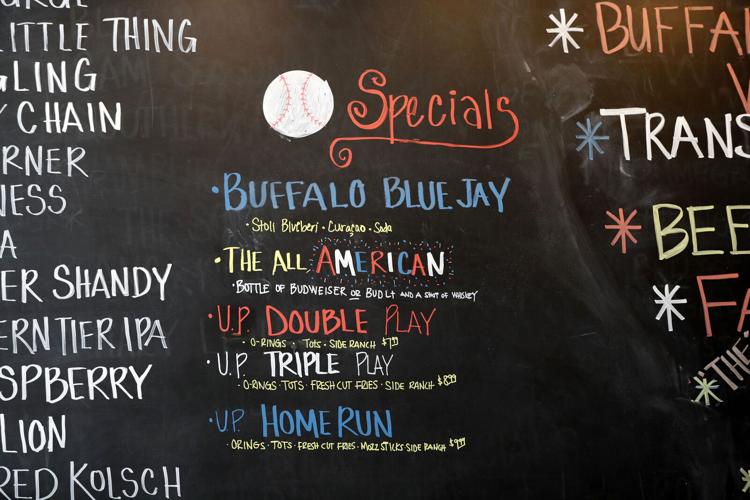 LITTLE THING
LING
CHAIN
RNER
NESS
A
ER SHANDY
ERN TIER IPA
SPBERRY
LION
RED KOLSCH
Specials
• BUFFALO BLUE JAY
• Stoli Blueberi • Curaçao • Soda
• THE ALL AMERICAN
• BOTTLE OF BUDWEISER OR BUD LT AND A SHOT OF WHISKEY
• U.P. DOUBLE PLAY
• O-RINGS • TOTS • SIDE RANCH
• U.P. TRIPLE PLAY
• O-RINGS • TOTS • FRESH CUT FRIES • SIDE RANCH $8.99
• U.P. HOME RUN
• ORINGS • TOTS • FRESH CUT FRIES • MOZZ STICKS SIDE RANCH $9.99
* BUFFA
* TRANS
* BEE
* FA
* THE